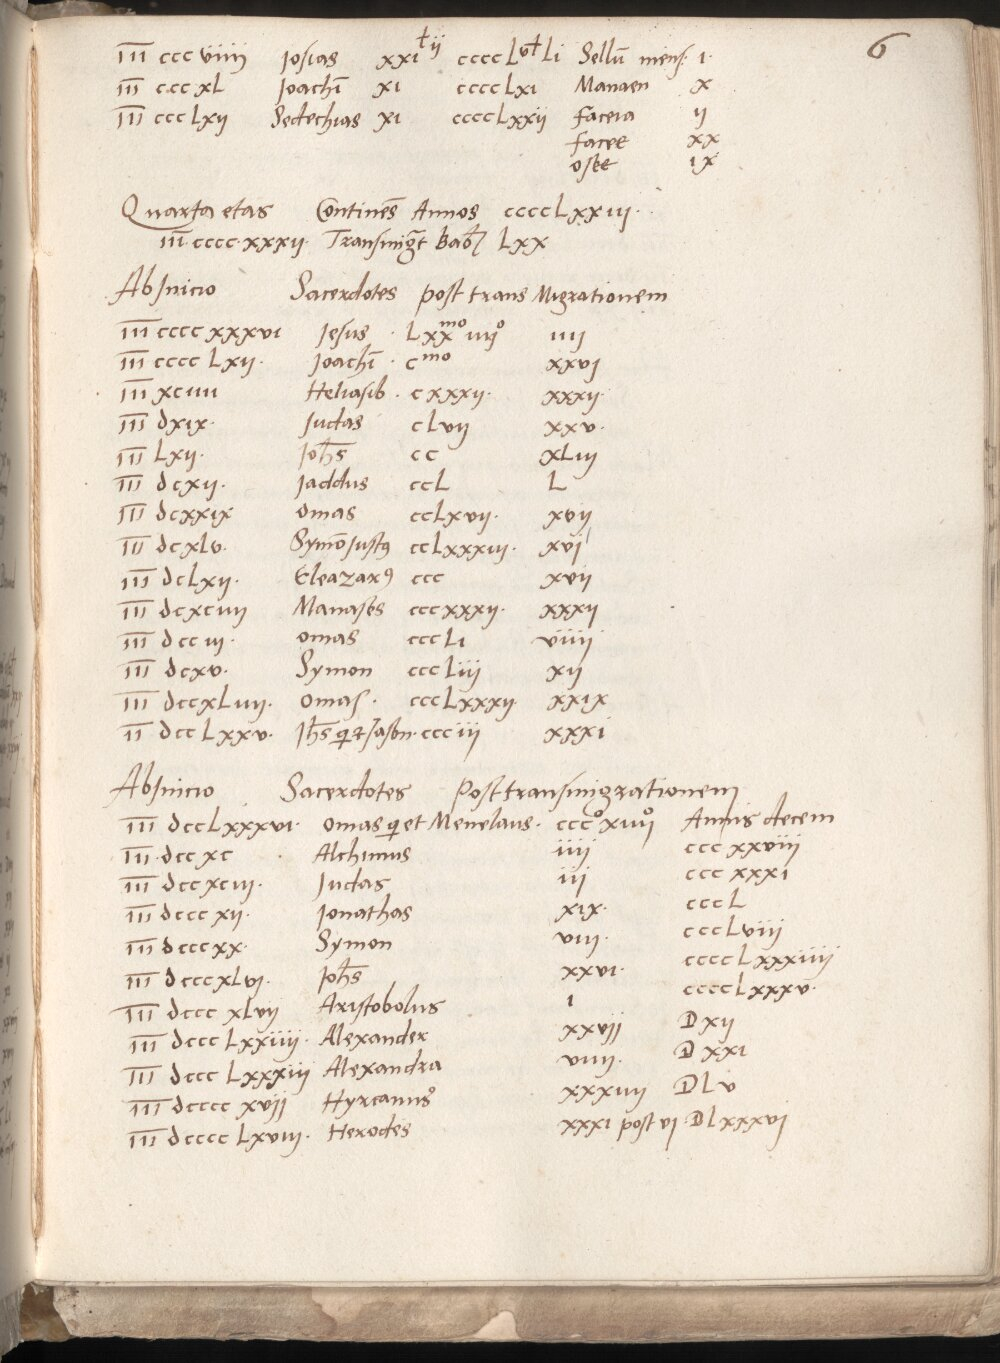 6
III ccc viiij Josias xxi ƚij cccc Lvƚ Li Sellū mens: 1·
III ccc xL Joachī xi cccc Lxi Manaen x
III ccc Lxij Sedechias xi cccc Lxxij faceia ij
facee xx
osee ix
Quarta etas Continēs Annos cccc Lxxiij·
III·cccc·xxxij· Transmigr̄t Bab̄l Lxx
Ab Inicio Sacerdotes post trans Migrationem
III cccc xxxvi Jesus · Lxxmo iiijo iiij
III cccc Lxij· Joachī · cmo xxvj
III xciiii Heliasib · c xxxij· xxxij·
III dxix· Judas c Lvij xxv·
III Lxij· Joh̄s cc xLiij
III dcxij· Jaddus ccL L
III dcxxix onias ccLxvij· xvij
III dcxLv· Symō Justꝯ ccLxxxiij· xvj
III dcLxij· Eleazarꝯ ccc xvij
III dcxciiij Manases cccxxxij· xxxij
III dcciij· onias cccLi viiij
III dcxv· Symon cccLiij xij
III dccxLiiij· onias· cccLxxxij· xxix
II dccLxxv· Jh̄s qi et Jason· ccciij xxxi
Ab Inicio Sacerdotes Post transmigrationem
III dccLxxxvi· onias qi et Menelaus· cccoxiiijo Annis decem
III·dcc xc · Alchimus iiij ccc xxviij
III dcc xciij· Judas iij ccc xxxi
III dccc xij· Jonathas xix· cccL
III dccc xx· Symon viij· cccLviij
III dcccxLvi· Joh̄s xxvi· ccccLxxxiiij
III dccc xLvij Aristobolus 1 ccccLxxxv·
III dccc Lxxiiij· Alexander xxvij D xij
III dccc Lxxxiij Alexandra viiij· D xxi
III dcccc xvij Hyrcanus xxxiiij D L v
III dcccc Lxviij· Herodes xxxi post vj DLxxxvj